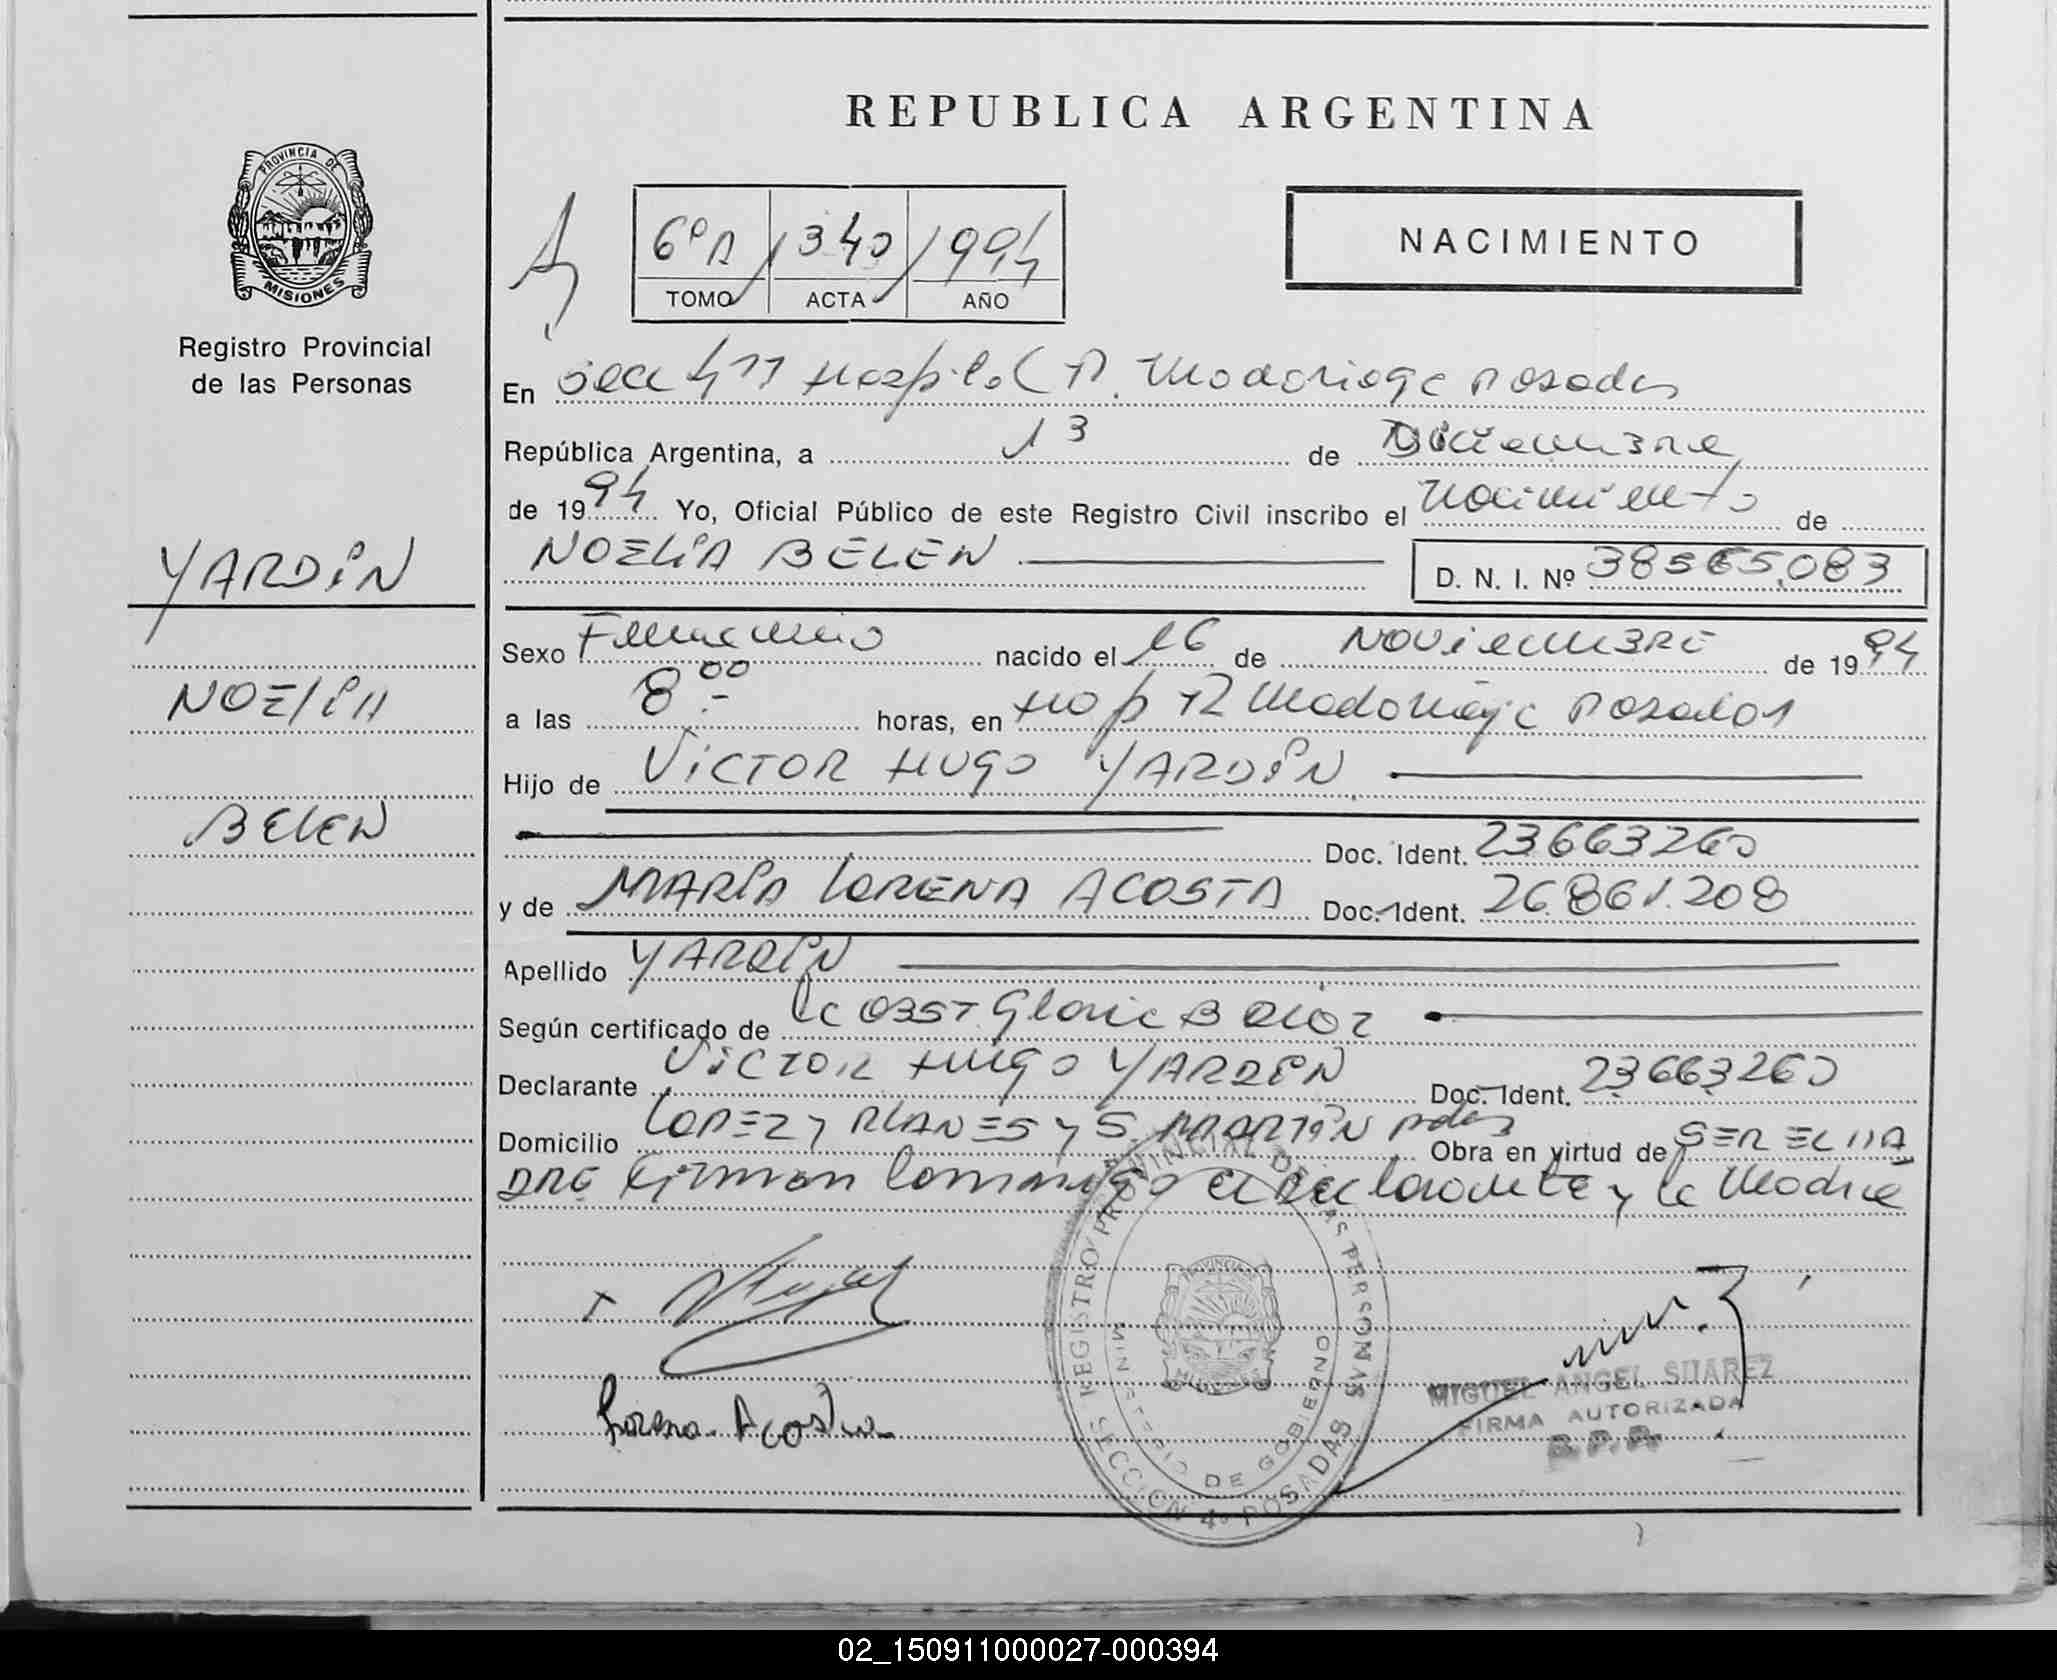 REPUBLICA ARGENTINA
PROVINCIA DE
MISIONES
Registro Provincial
de las Personas
6º A 340 1994
TOMO ACTA AÑO
NACIMIENTO
En Secc 4ª Hospital R. Madariaga Posadas
República Argentina, a 13 de Diciembre
de 1994 Yo, Oficial Público de este Registro Civil inscribo el Nacimiento de
NOELIA BELEN D. N. I. Nº 38565.083
YARDIN
NOELIA
BELEN
Sexo Femenino nacido el 16 de NOVIEMBRE de 1994
a las 8 00 horas, en Hosp R Madariaga Posadas
Hijo de VICTOR HUGO YARDIN
Doc. Ident. 23663260
y de MARIA LORENA ACOSTA Doc. Ident. 26.861.208
Apellido YARDIN
Según certificado de la OBST. Gloria
Declarante VICTOR HUGO YARDIN Doc. Ident. 23663260
Domicilio LOPEZ Y PLANES y S. MARTIN Pdas Obra en virtud de SER EL PA
DRE Firman conmigo el Declarante y la Madre
Lorena Acosta
REGISTRO PROVINCIAL DE LAS PERSONAS
MINISTERIO DE GOBIERNO
SECCION 4º POSADAS
MIGUEL ANGEL SUAREZ
FIRMA AUTORIZADA
R.P.P.
02_150911000027-000394